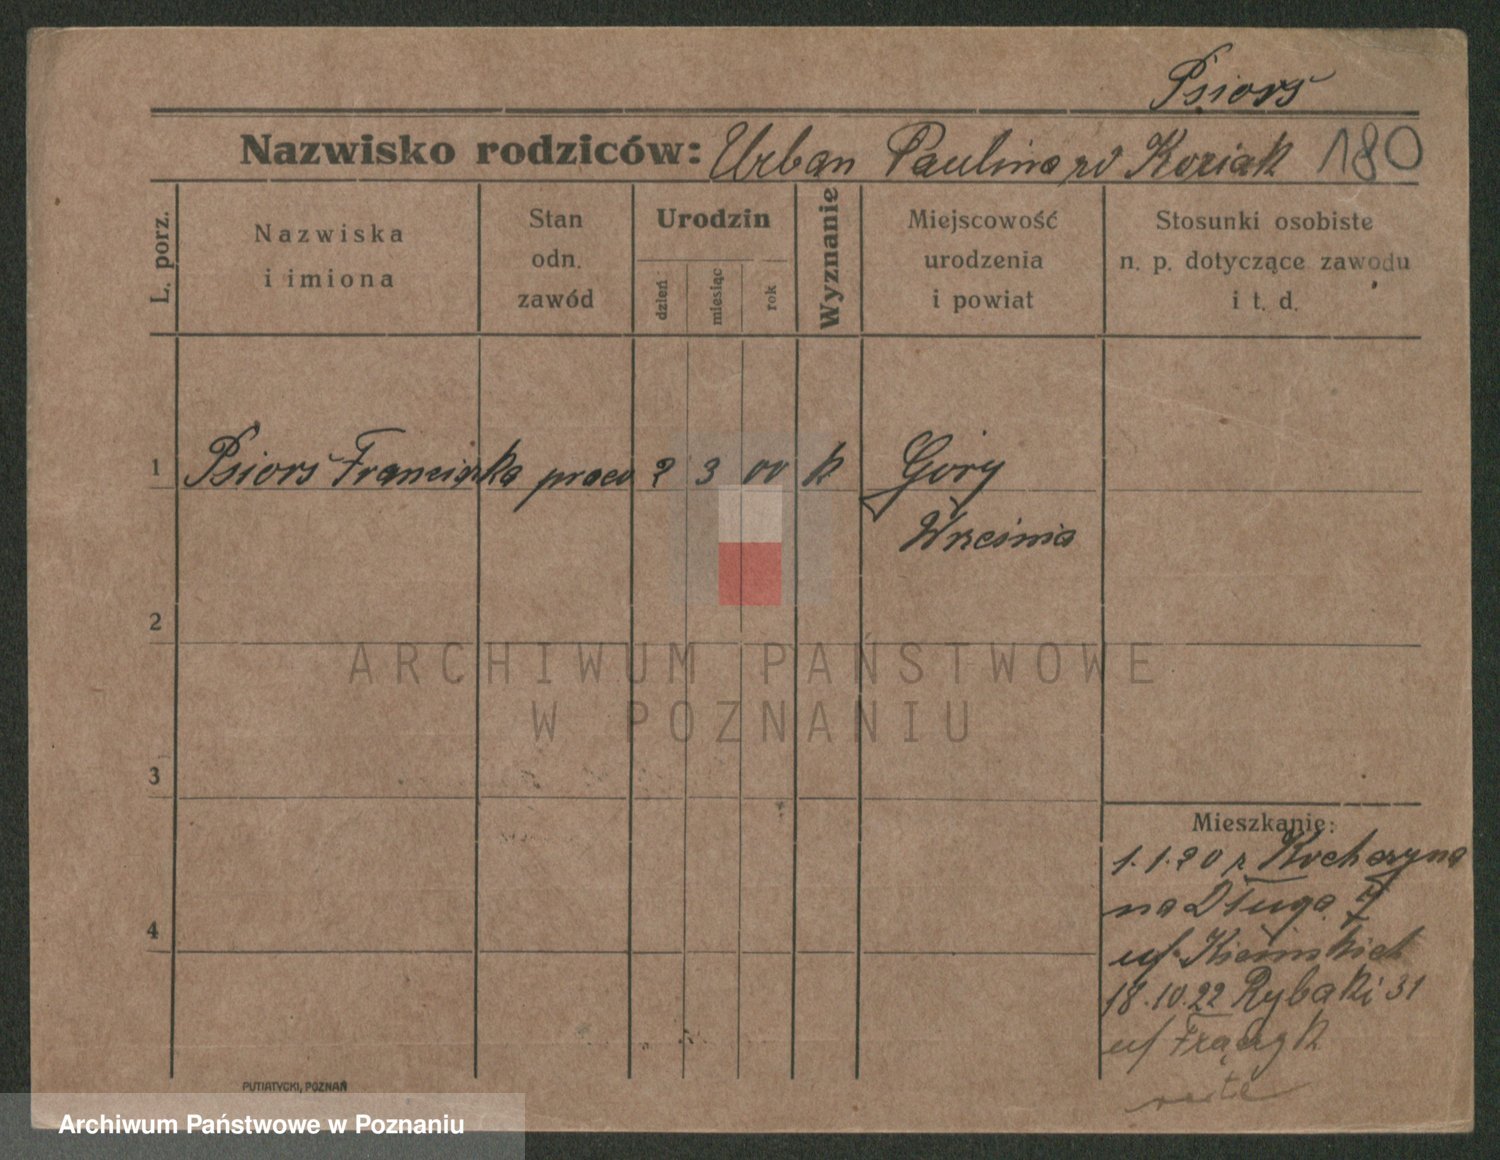 Psiors
Nazwisko rodziców: Urban Paulina zd Koziak 180
L. porz.
Nazwiska i imiona
Stan odn. zawód
Urodzin
dzień
miesiąc
rok
Wyznanie
Miejscowość urodzenia i powiat
Stosunki osobiste n. p. dotyczące zawodu i t. d.
1 Psiors Franciszka 3 00 k Gory
2
3
4
Mieszkanie:
1.1.20 z
na Długa 7
u/
18.10.22 Rybaki 31
u/
ARCHIWUM PAŃSTWOWE
W POZNANIU
PUTIATYCKI, POZNAŃ
Archiwum Państwowe w Poznaniu